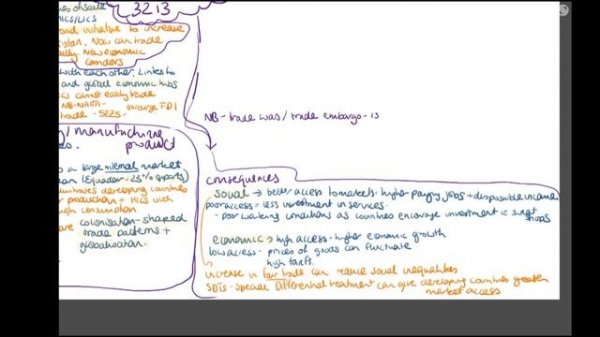 3213
es of scale
NICs/LICs
oad initiative to increase
Now can trade
New economic
corridors
with each other, links to
and global economic hubs
cannot easily trade
NB-NAFTA- encourage FDI
trade - SEZs-
NB - trade wars / trade embargo - is
/ manufacture
product
large internal market
(Equador = 25% exports)
developing countries
production + HICs with
high consumption
are colonisation - shaped
trade patterns +
globalisation.
consequences
social → better access to markets: higher paying jobs + disposable income
poor access = less investment in services.
- poor working conditions as countries encourage investment = sweat
shops
economic → high access - higher economic growth
low access - prices of goods can fluctuate
high tariffs.
increase in fair trade can reduce social inequalities
SDTs - Special Differential treatment can give developing countries greater
market access